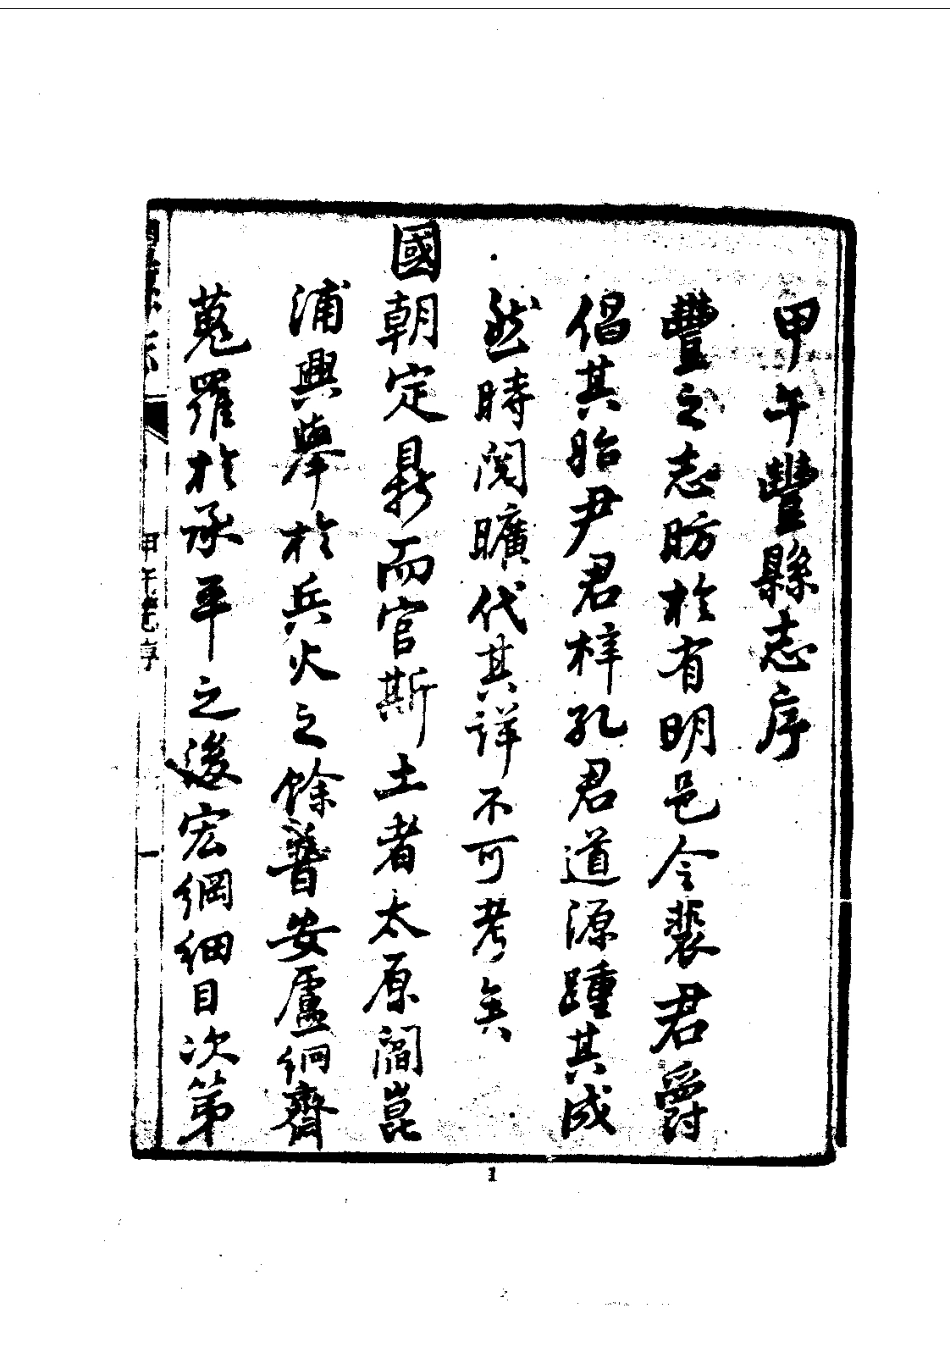 甲午豐縣志序
豐之志昉於有明邑令裴君爵
倡其胎尹君梓孔君道源踵其成
然時閱曠代其詳不可考矣
國朝定鼎而官斯土者太原閻崑
浦興舉於兵火之餘普安盧絅齊
蒐羅於承平之後宏綱細目次第
豐縣志
甲午舊序
一
1